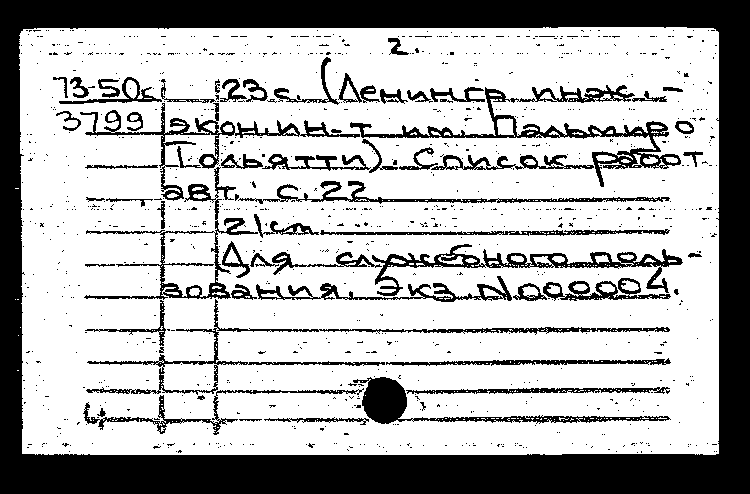 2.
73-50с 23 с. (Ленингр. инж.-
3799 экон. ин-т им. Пальмиро
Тольятти). Список работ
авт.: с. 22.
21 см.
Для служебного поль-
зования. Экз. N000004.
4